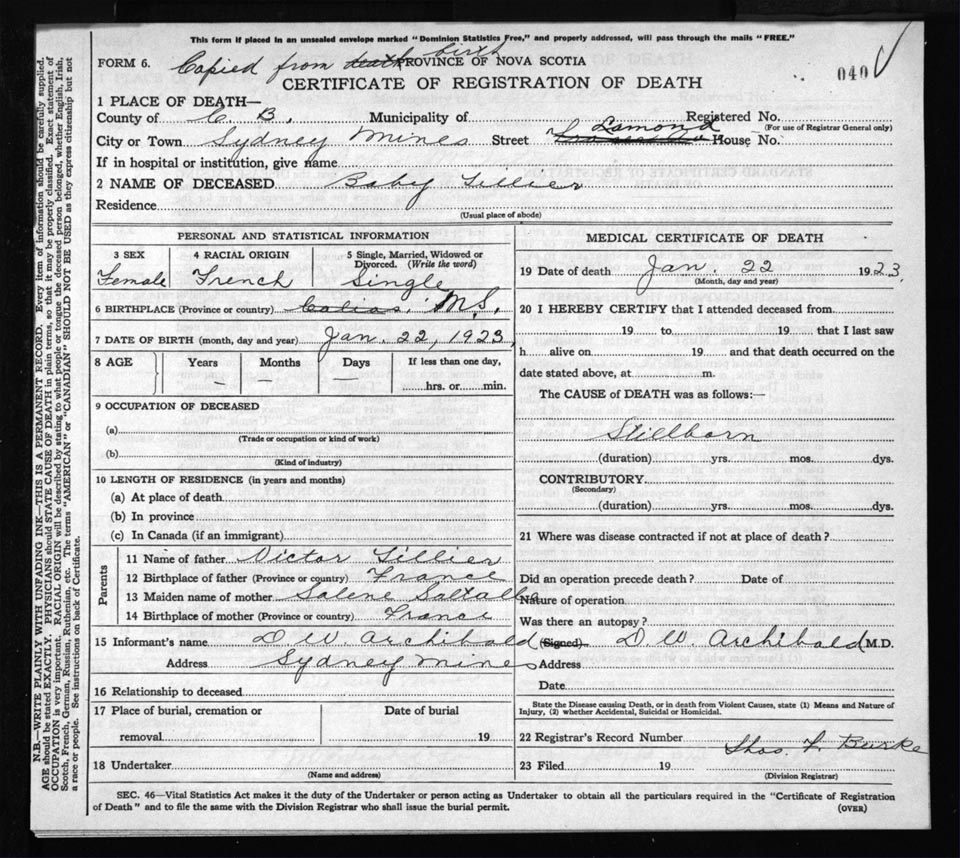 This form if placed in an unsealed envelope marked "Dominion Statistics Free," and properly addressed, will pass through the mails "FREE."
FORM 6. Copied from death birth PROVINCE OF NOVA SCOTIA
040
CERTIFICATE OF REGISTRATION OF DEATH
1 PLACE OF DEATH—
County of C. B. Municipality of Registered No.
(For use of Registrar General only)
City or Town Sydney Mines Street Lamond House No.
If in hospital or institution, give name
2 NAME OF DECEASED Baby Tillier
Residence
(Usual place of abode)
PERSONAL AND STATISTICAL INFORMATION
3 SEX 4 RACIAL ORIGIN 5 Single, Married, Widowed or Divorced. (Write the word)
Female French Single
6 BIRTHPLACE (Province or country) N.S.
7 DATE OF BIRTH (month, day and year) Jan. 22, 1923
8 AGE Years Months Days If less than one day,
— — hrs. or min.
9 OCCUPATION OF DECEASED
(a)
(Trade or occupation or kind of work)
(b)
(Kind of industry)
10 LENGTH OF RESIDENCE (in years and months)
(a) At place of death
(b) In province
(c) In Canada (if an immigrant)
Parents
11 Name of father Victor Tillier
12 Birthplace of father (Province or country) France
13 Maiden name of mother
14 Birthplace of mother (Province or country) France
15 Informant's name D W Archibald
Address Sydney Mines
16 Relationship to deceased
17 Place of burial, cremation or Date of burial
removal 19
18 Undertaker
(Name and address)
MEDICAL CERTIFICATE OF DEATH
19 Date of death Jan. 22 1923
(Month, day and year)
20 I HEREBY CERTIFY that I attended deceased from
19 to 19 that I last saw
h alive on 19 and that death occurred on the
date stated above, at m.
The CAUSE of DEATH was as follows:—
Stillborn
(duration) yrs. mos. dys.
CONTRIBUTORY
(Secondary)
(duration) yrs. mos. dys.
21 Where was disease contracted if not at place of death?
Did an operation precede death? Date of
Nature of operation
Was there an autopsy?
(Signed) D W Archibald M.D.
Address
Date
State the Disease causing Death, or in death from Violent Causes, state (1) Means and Nature of
Injury, (2) whether Accidental, Suicidal or Homicidal.
22 Registrar's Record Number
Thos. F. Burke
23 Filed 19
(Division Registrar)
SEC. 46—Vital Statistics Act makes it the duty of the Undertaker or person acting as Undertaker to obtain all the particulars required in the "Certificate of Registration
of Death" and to file the same with the Division Registrar who shall issue the burial permit.
(OVER)
N.B.—WRITE PLAINLY WITH UNFADING INK—THIS IS A PERMANENT RECORD. Every item of information should be carefully supplied.
AGE should be stated EXACTLY. PHYSICIANS should STATE CAUSE OF DEATH in plain terms, so that it may be properly classified. Exact statement of
OCCUPATION is very important. RACIAL ORIGIN will be described by stating to what people or tongue the deceased person belonged, whether English, Irish,
Scotch, French, German, Russian, Ruthenian, etc. The terms "AMERICAN" or "CANADIAN" SHOULD NOT BE USED as they express citizenship but not
a race or people. See instructions on back of Certificate.